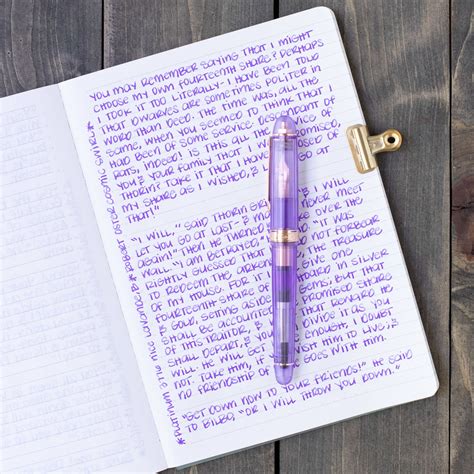 YOU MAY REMEMBER SAYING THAT I MIGHT
CHOOSE MY OWN FOURTEENTH SHARE? PERHAPS
I TOOK IT TOO LITERALLY- I HAVE BEEN TOLD
THAT DWARVES ARE SOMETIMES POLITER IN
WORD THAN DEED. THE TIME WAS, ALL THE
SAME, WHEN YOU SEEMED TO THINK THAT I
HAD BEEN OF SOME SERVICE. DESCENDANT OF
RATS, INDEED! IS THIS ALL THE OF
YOU & YOUR FAMILY THAT I
THORIN? TAKE IT THAT I HAVE OF
MY SHARE AS I WISHED, & GO AT
THAT!"
"I WILL," SAID THORIN & I WILL
LET YOU GO AT LAST- & MAY NEVER MEET
AGAIN!" THEN HE TURNED OVER THE
WALL. "I AM BETRAYED," "IT WAS
RIGHTLY GUESSED THAT NOT FORBEAR
TO REDEEM THE ARKENSTONE, THE TREASURE
OF MY HOUSE. FOR IT GIVE ONE
FOURTEENTH SHARE OF IN SILVER
& GOLD, SETTING ASIDE GEMS; BUT THAT
SHALL BE ACCOUNTED PROMISED SHARE
OF THIS TRAITOR, & THAT HE
SHALL DEPART, & YOU DIVIDE IT AS YOU
WILL. HE WILL GET ENOUGH, I DOUBT
NOT. TAKE HIM, IF HIM TO LIVE; &
NO FRIENDSHIP OF GOES WITH HIM.
"GET DOWN NOW TO YOUR FRIENDS!" HE SAID
TO BILBO, "OR I WILL THROW YOU DOWN."